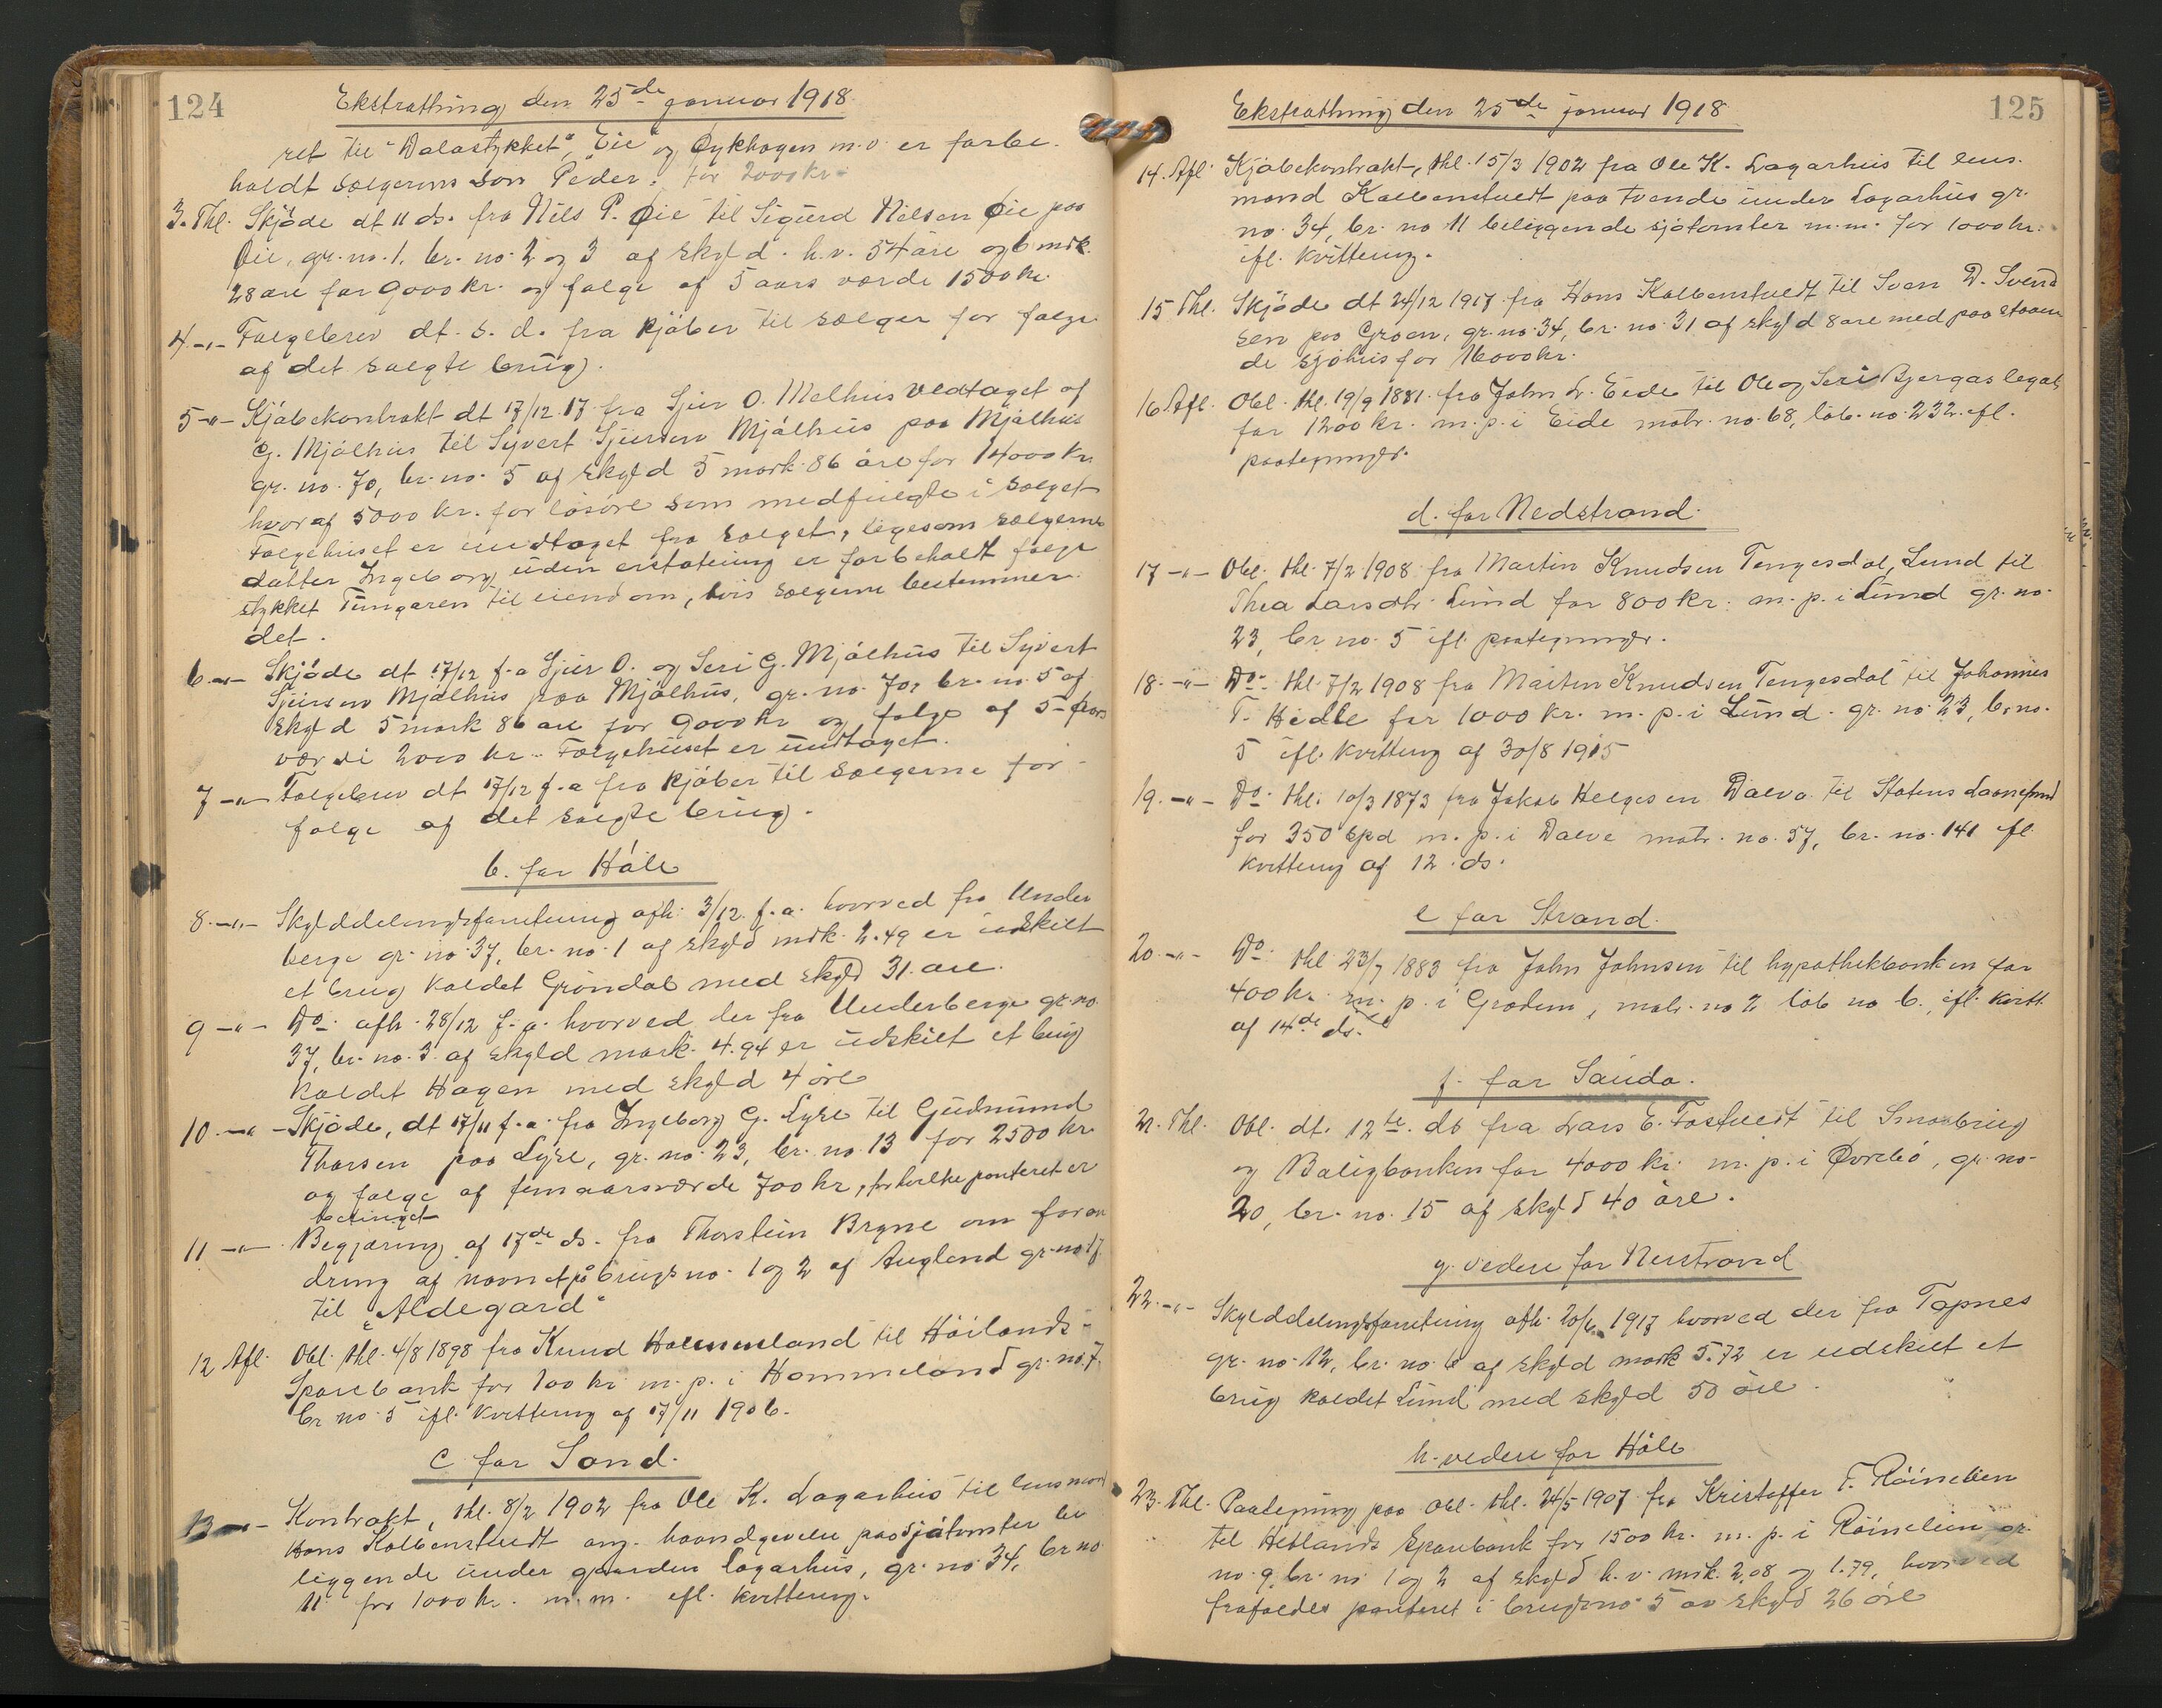 124
Ekstrathing den 25de januar 1918.
ret til "Dalastykket", "Eie" og Dykhagen m.v. er forbe-
holdt sælgerens søn Peder. for 2000 kr
3. Thl. Skjøde dt 11 ds. fra Nils P. Øie til Sigurd Nilsen Øie paa
Øie, gr. no. 1, br. no. 2 og 3 af skyld h.v. 54 øre og 6 mrk.
28 øre for 9000 kr. og følge af 5 aars værde 1500 kr.
4 -"- Følgebrev dt. s. d. fra kjøber til sælger for følge
af det solgte brug.
5 -"- Kjøbekontrakt dt 17/12 17 fra Sjur O. Mælhus vedtaget af
G. Mjølhus til Syvert Sjursen Mjølhus paa Mjølhus
gr. no. 70, br. no. 5 af skyld 5 mark 86 øre for 14000 kr.
hvoraf 5000 kr. for løsøre som medfulgte i salget
Følgehuset er undtaget fra salget, ligesom sælgerens
datter Ingeborg uden erstatning er forbeholdt følge
stykket Tungaren til eiendom, hvis sælgerne bestemmer
det.
6 -"- Skjøde dt 17/12 f.a Sjur O. og Seri G. Mjølhus til Syvert
Sjursen Mjølhus paa Mjølhus, gr. no. 70, br. no. 5 af
skyld 5 mark 86 øre for 9000 kr og følge af 5-aars
værdi 2000 kr. Følgehuset er undtaget.
7 -"- Følgebrev dt 17/12 f.a fra kjøber til sælgerne for
følge af det solgte brug.
b. for Høle
8. -"- Skylddelingsforretning afh. 3/12 f.a. hvorved fra Under
berge gr. no 37, br. no. 1 af skyld mrk. 2.49 er udskilt
et brug kaldet Grøndal med skyld 31 øre.
9 -"- Do. afh. 28/12 f.a. hvorved der fra Underberge gr. no.
37, br. no. 3 af skyld mark. 4.94 er udskilt et brug
kaldet Hagen med skyld 4 øre
10 -"- Skjøde, dt 17/11 f.a. fra Ingeborg G. Lyse til Gudmund
Thorsen paa Lyse, gr. no. 23, br. no. 13 for 2500 kr.
og følge af femaarsværde 700 kr, for hvilke panteret er
betinget
11 -"- Begjæring af 17de ds. fra Thorstein Bryne om foran
dring af navnet på brugs no. 1 og 2 af Augland gr. no 17
til "Aldegard"
12 Afl. Obl. thl. 4/8 1898 fra Knud Hommeland til Høilands-
Sparebank for 100 kr m. p. i Hommeland gr. no. 7.
br no 5 ifl. kvittering af 17/11 1906.
c for Sand.
13 -"- Kontrakt, thl. 8/2 1902 fra Ole K. Lagarhus til lensmand
Hans Kolbenstvedt ang. haandgivelse paa sjøtomter be
liggende under gaarden Lagarhus, gr. no. 34, br no
11 for 1000 kr. m.m. ifl. kvittering.
125
Ekstrathing den 25de januar 1918
14. Afl. Kjøbekontrakt, thl. 15/3 1902 fra Ole K. Lagarhus til lens-
mand Kolbenstvedt paa tvende under Lagarhus gr.
no. 34, br. no 11 beliggende sjøtomter m.m. for 1000 kr.
ifl. kvittering.
15 Thl. Skjøde dt 24/12 1917 fra Hans Kolbenstvedt til Sven D. Svend
sen paa Groen, gr. no. 34, br. no. 31 af skyld 8 øre med paa staaen
de sjøhus for 16000 kr.
16 Afl. Obl. thl. 19/9 1881 fra John L. Eide til Ole og Seri Bjergas legat
for 1200 kr. m. p. i Eide matr. no. 68, løb. no. 232 ifl.
paategninger.
d. for Nedstrand.
17 -"- Obl. thl. 7/2 1908 fra Martin Knudsen Tengesdal, Lund til
Thea Larsdtr. Lund for 800 kr. m. p. i Lund gr. no.
23, br no. 5 ifl. paategninger.
18. -"- Do. thl. 7/2 1908 fra Martin Knudsen Tengesdal til Johannes
T. Hidle for 1000 kr. m. p. i Lund gr. no. 23, br. no.
5 ifl. kvittering af 30/8 1915
19. -"- Do. thl. 10/3 1873 fra Jakob Helgesen Dalva til Statens Laanefond
for 350 spd m. p. i Dalve matr. no. 57, br. no. 141 ifl.
kvittering af 12. ds.
e for Strand.
20 -"- Do. thl 23/7 1883 fra John Johnsen til hypothekbanken for
400 kr. m. p. i Grødem, matr. no 2 løb no 6, ifl. kvitt.
af 14de ds.
f. for Sauda.
21. Thl. Obl. dt. 12te. ds fra Lars E. Fostvedt til Smaabrug
og Boligbanken for 4000 kr. m. p. i Øvrebø, gr. no.
20, br. no. 15 af skyld 40 øre.
g. videre for Nerstrand
22. -"- Skylddelingsforretning afh. 20/6 1917 hvorved der fra Tøpnes
gr. no. 12, br. no. 6 af skyld mark 5.72 er udskilt et
brug kaldet Lund med skyld 50 øre.
h. videre for Høle
23. Thl. Paategning paa obl. thl. 24/5 1907 fra Kristoffer T. Røineliem
til Hetlands Sparebank for 1500 kr. m. p. i Røineliem gr.
no. 9, br. no 1 og 2 af skyld h. v. mrk. 2,08 og 1.79, hvorved
frafaldes panteret i brugsno 5 av skyld 26 øre